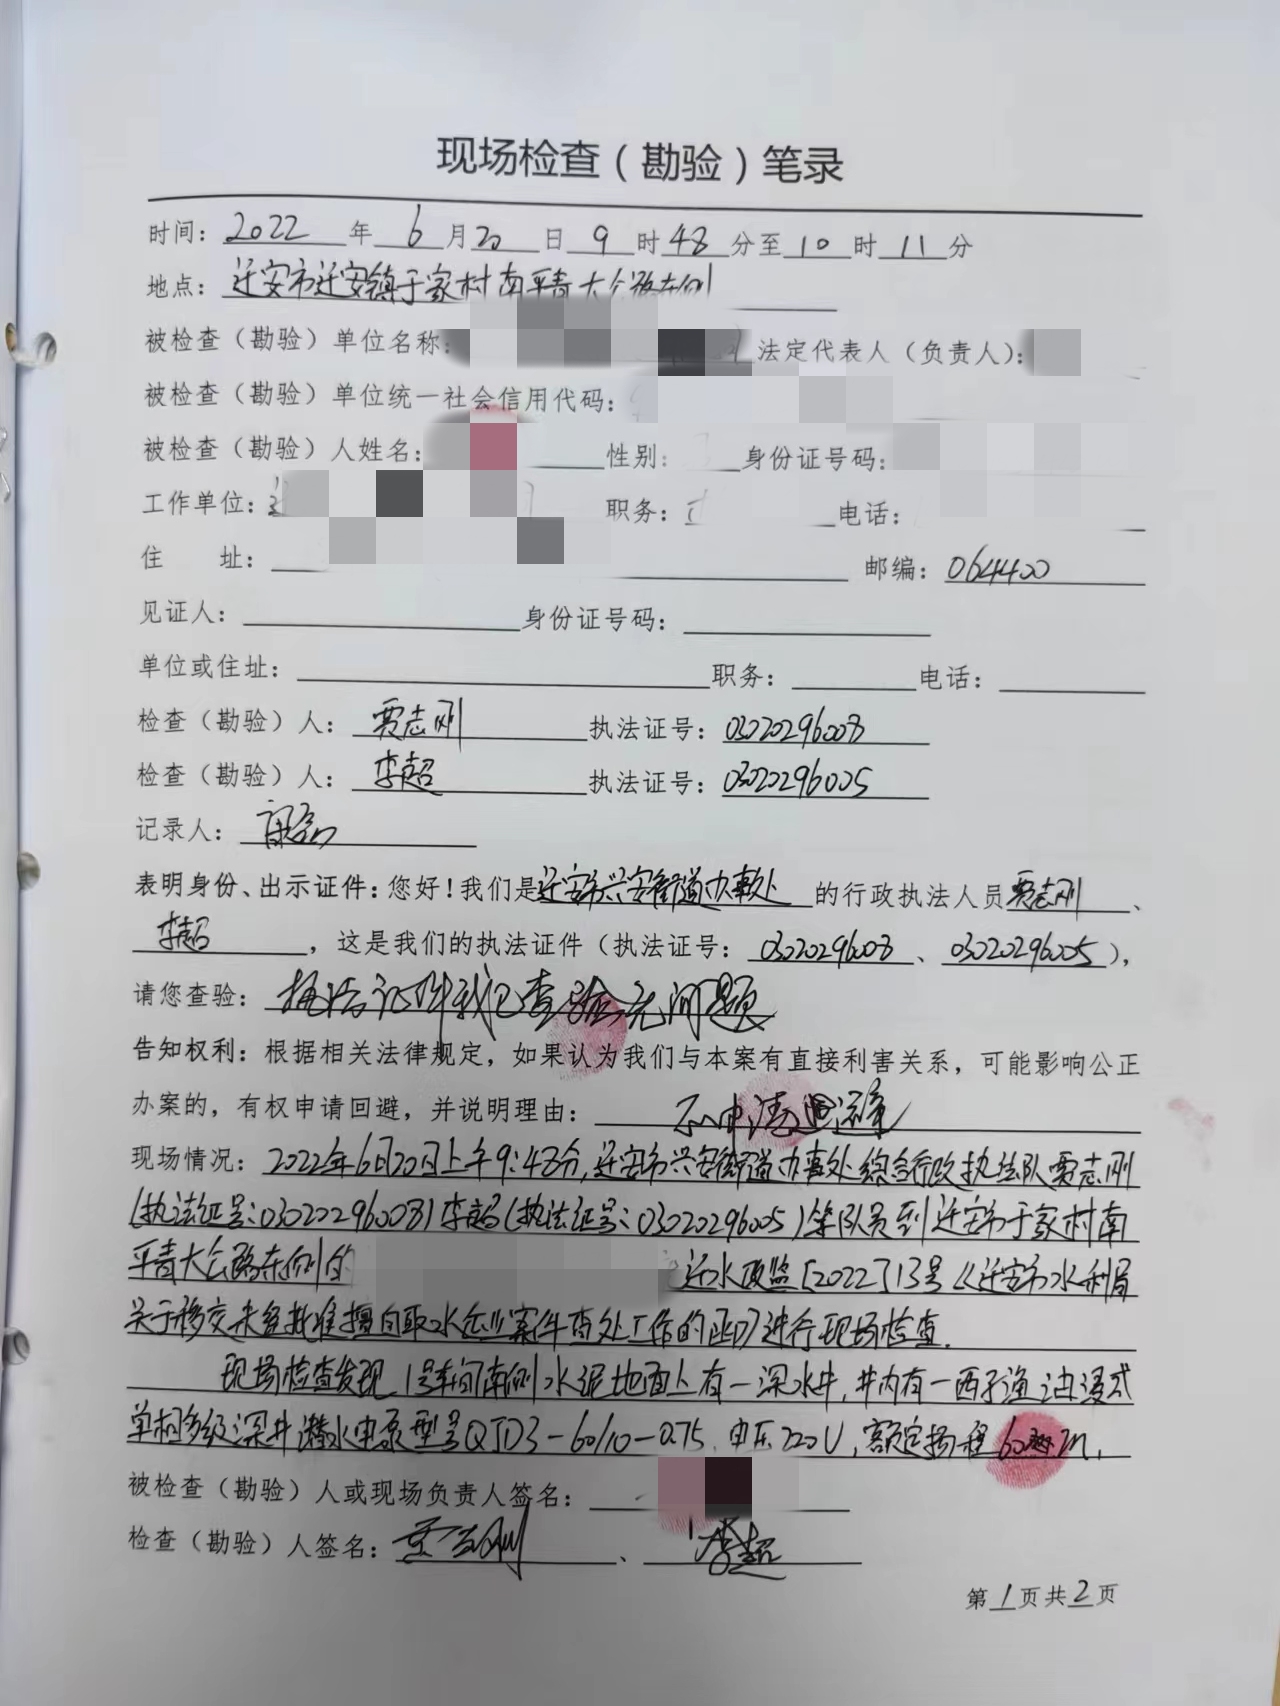 现场检查（勘验）笔录
时间：2022年6月20日9时48分至10时11分
地点：迁安市迁安镇于家村南平青大公路东侧
被检查（勘验）单位名称： 法定代表人（负责人）：
被检查（勘验）单位统一社会信用代码：
被检查（勘验）人姓名： 性别： 身份证号码：
工作单位： 职务： 电话：
住 址： 邮编：064400
见证人： 身份证号码：
单位或住址： 职务： 电话：
检查（勘验）人：贾志刚 执法证号：03020296008
检查（勘验）人：李超 执法证号：03020296005
记录人：
表明身份、出示证件：您好！我们是迁安市兴安街道办事处的行政执法人员贾志刚、
李超，这是我们的执法证件（执法证号：03020296008、03020296005），
请您查验：执法证件我已查验无问题
告知权利：根据相关法律规定，如果认为我们与本案有直接利害关系，可能影响公正
办案的，有权申请回避，并说明理由：不申请回避
现场情况：2022年6月20日上午9:48分，迁安市兴安街道办事处综合行政执法队贾志刚
（执法证号：03020296008）李超（执法证号：03020296005）等队员到迁安市于家村南
平青大公路东侧的 迁水政监［2022］13号《迁安市水利局
关于移交未经批准擅自取水企业案件查处工作的函》进行现场检查。
现场检查发现，1号车间南侧水泥地面上有一深水井，井内有一西子渔油浸式
单相多级深井潜水电泵型号QJD3-60/10-0.75，电压220V，额定扬程60m，
被检查（勘验）人或现场负责人签名：
检查（勘验）人签名：贾志刚、李超
第1页共2页